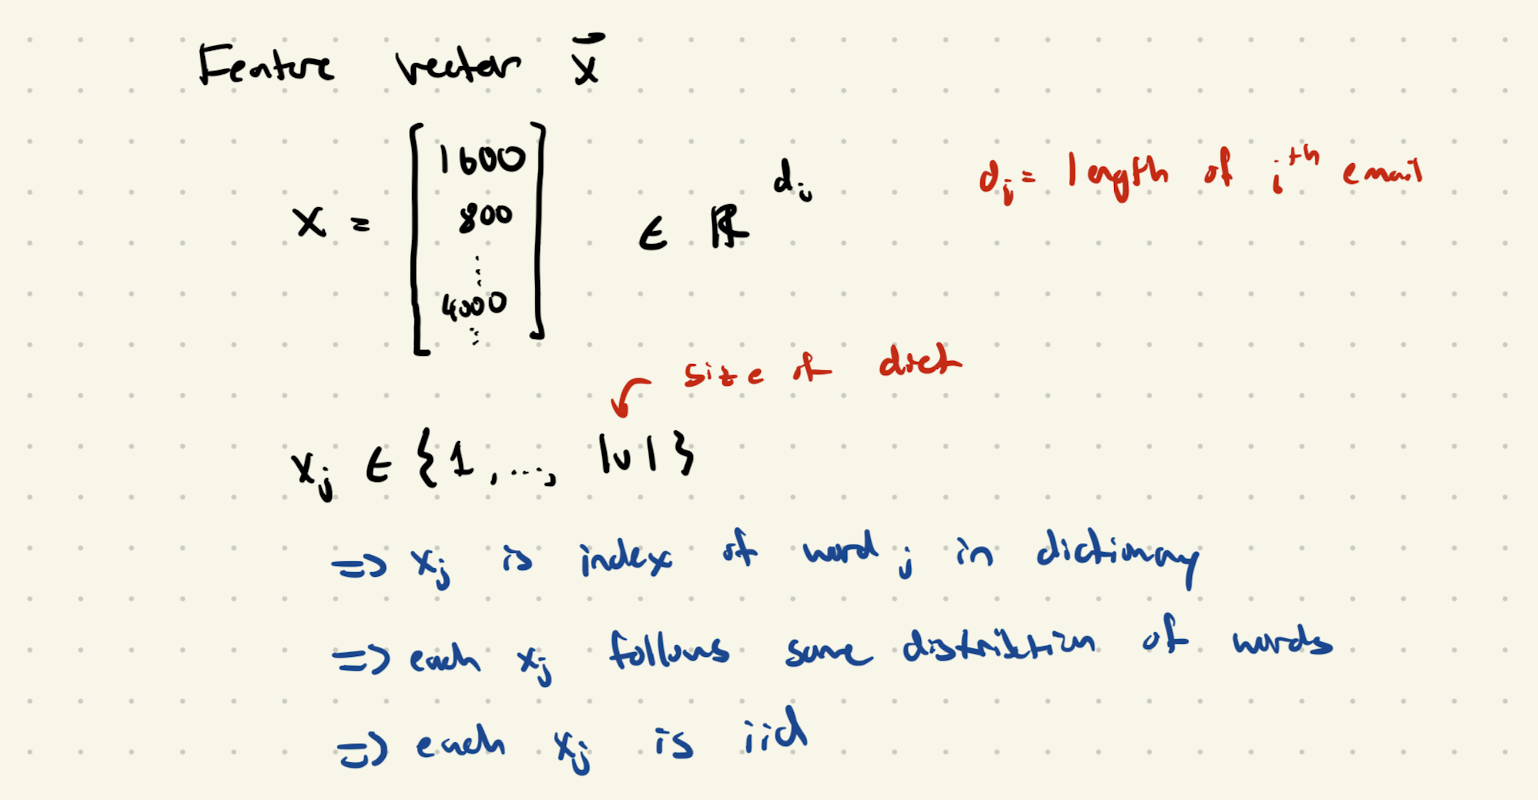 Feature vector x̄
x = [ 1600 800 ⋮ 4000 ⋮ ] ∈ ℝ^{d_i}
d_i = length of i^{th} email
size of dict
x_j ∈ {1, ..., |v|}
=> x_j is index of word j in dictionary
=> each x_j follows same distribution of words
=> each x_j is iid